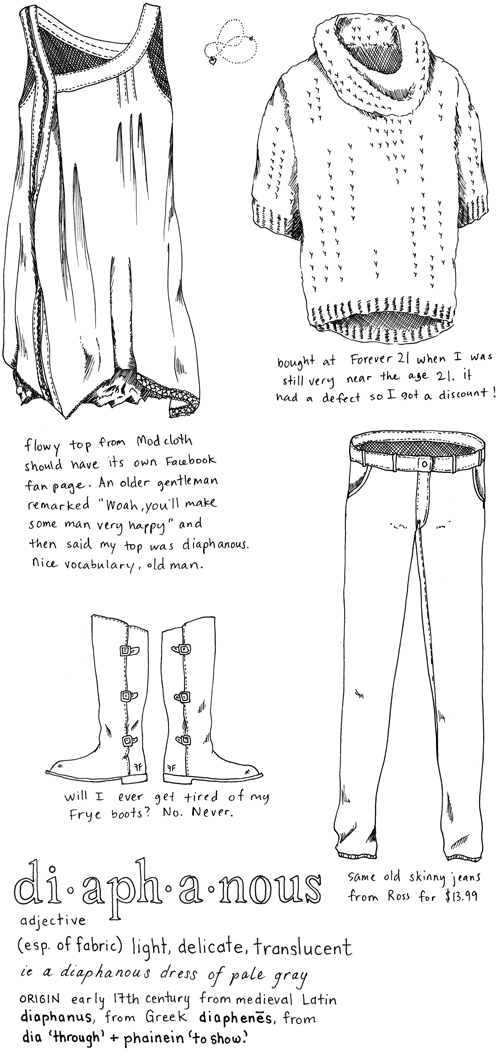 bought at Forever 21 when I was
still very near the age 21. it
had a defect so I got a discount!
flowy top from Modcloth
should have its own Facebook
fan page. An older gentleman
remarked "Woah, you'll make
some man very happy" and
then said my top was diaphanous.
nice vocabulary, old man.
will I ever get tired of my
Frye boots? No. Never.
same old skinny jeans
from Ross for $13.99
di·aph·a·nous
adjective
(esp. of fabric) light, delicate, translucent
ie a diaphanous dress of pale gray
ORIGIN early 17th century from medieval Latin
diaphanus, from Greek diaphenēs, from
dia 'through' + phainein 'to show.'